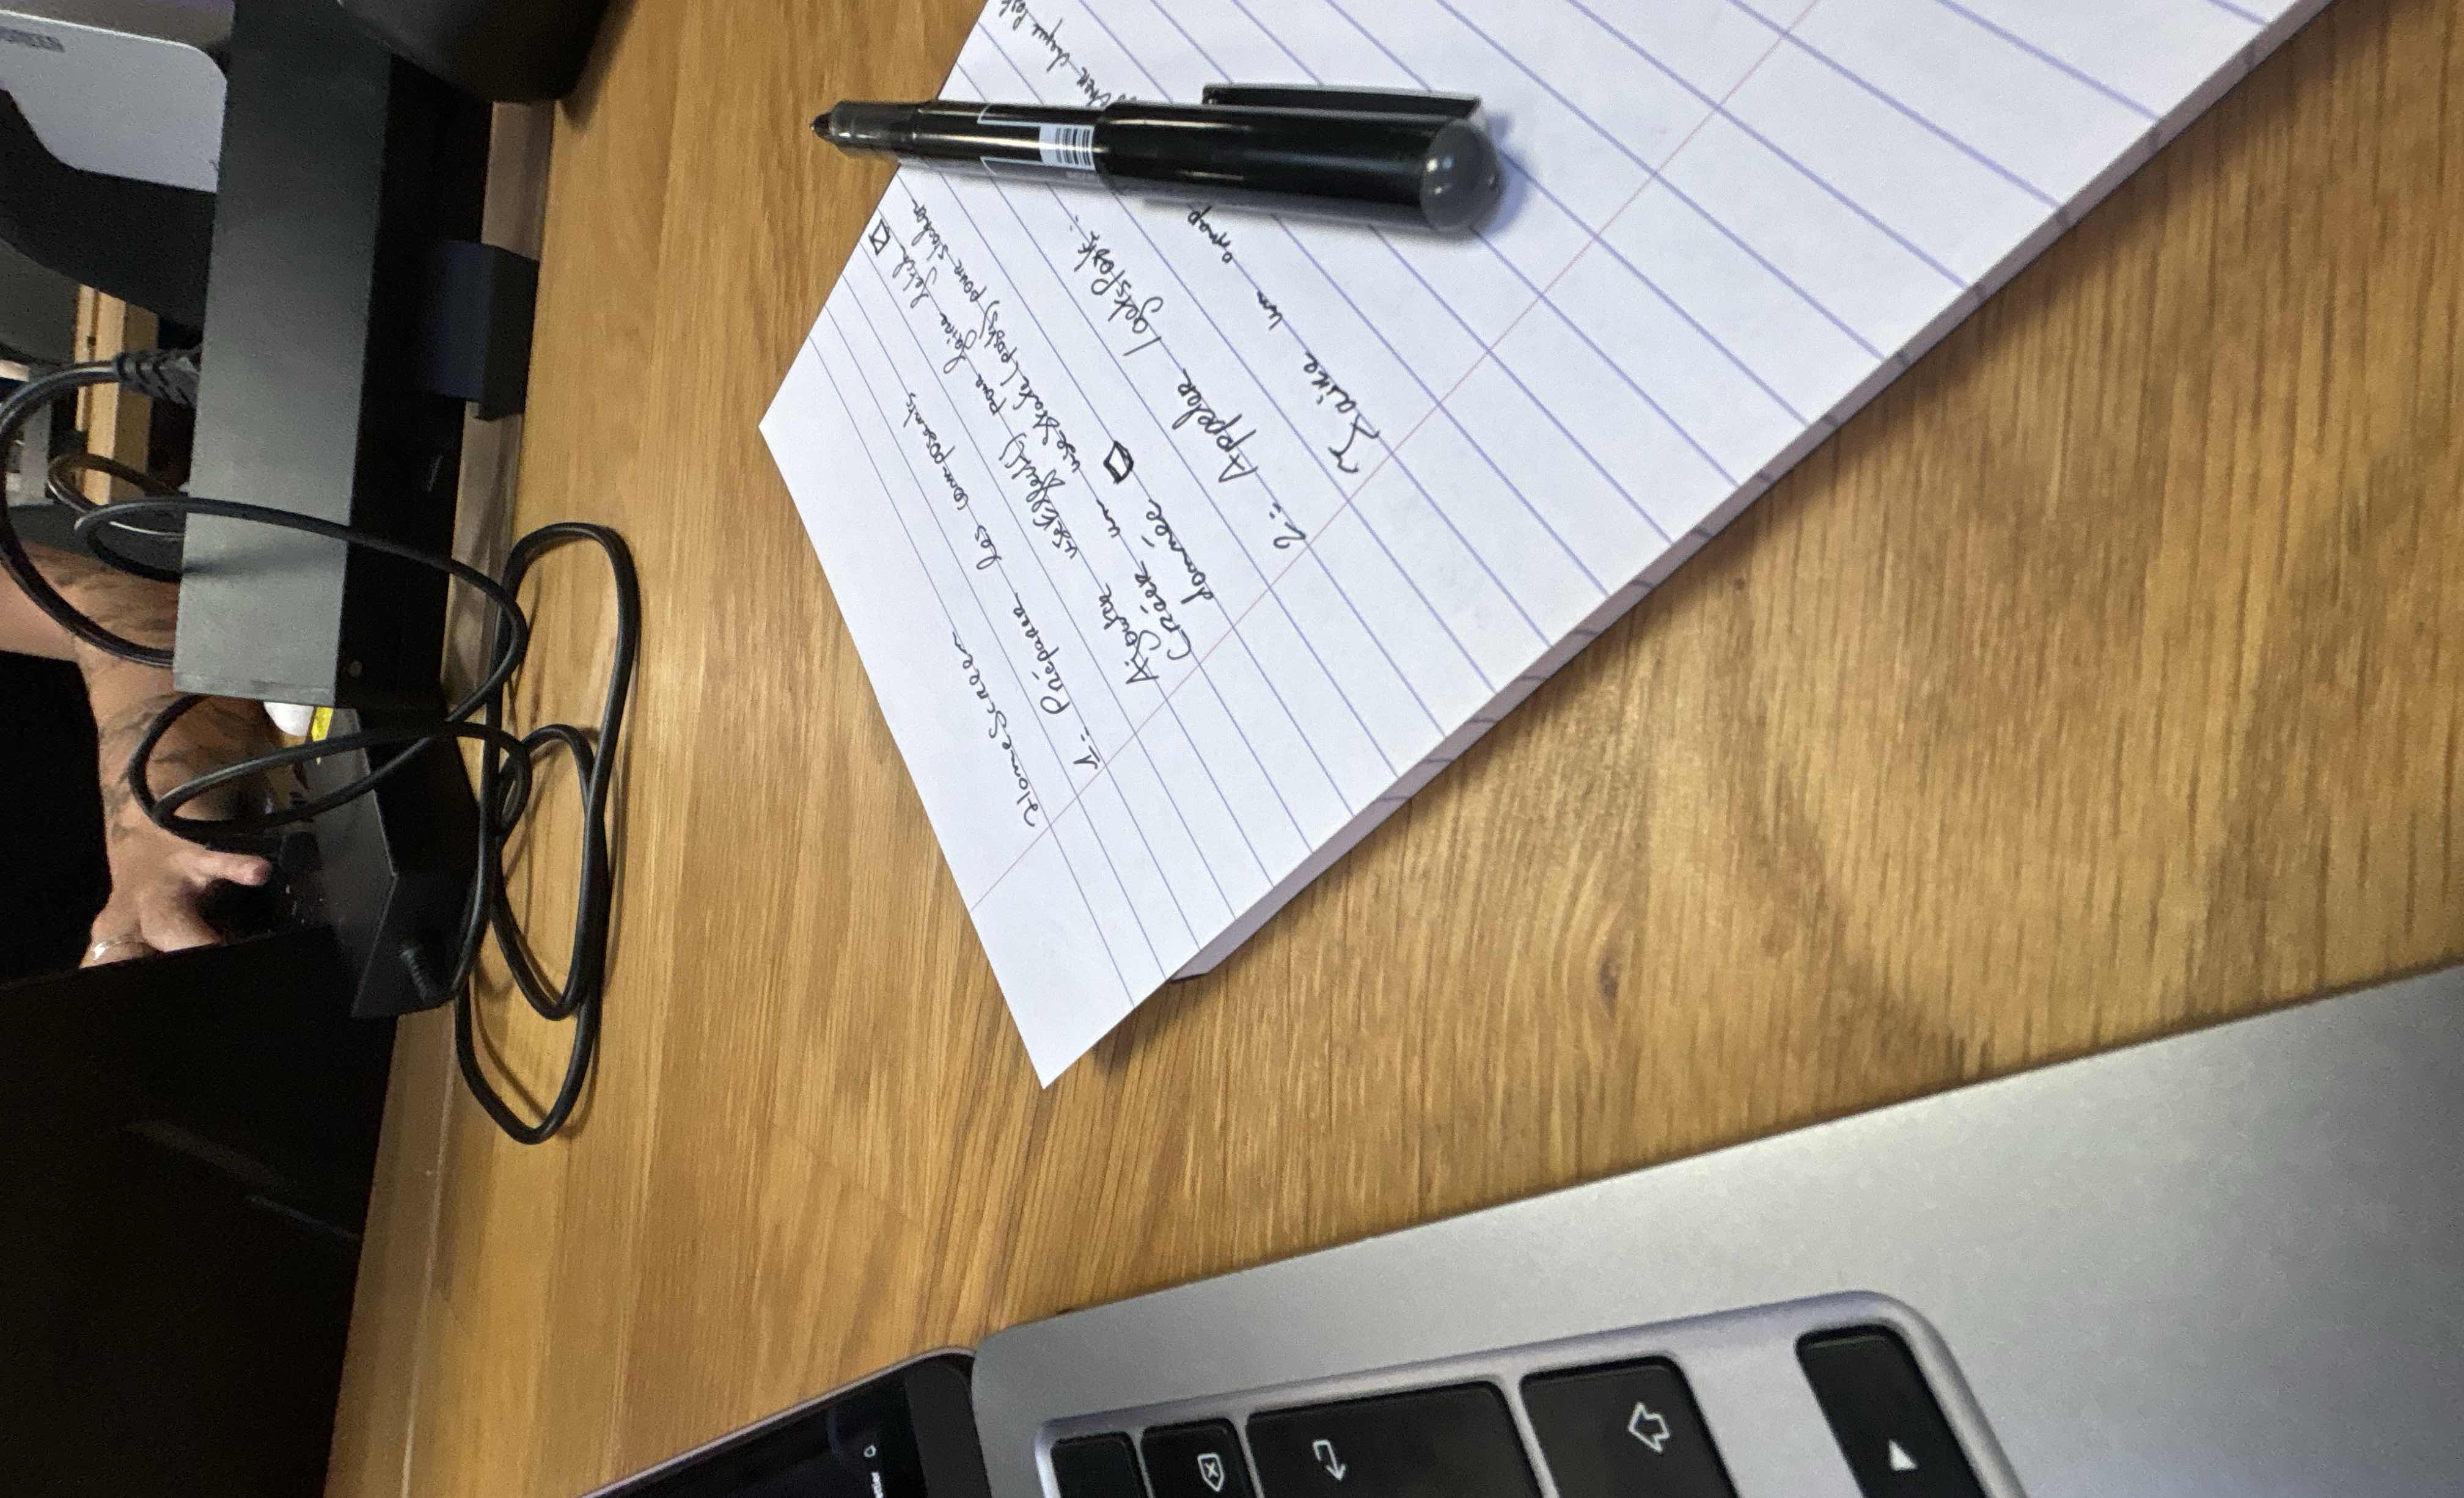 HomeScreen
1- Préparer les composants
Ajouter useEffect() pour faire fetch
Créer un useState(posts) pour stocker
donnée
2- Appeler /getsPosts:
Faire un map
chaque Post
ettier